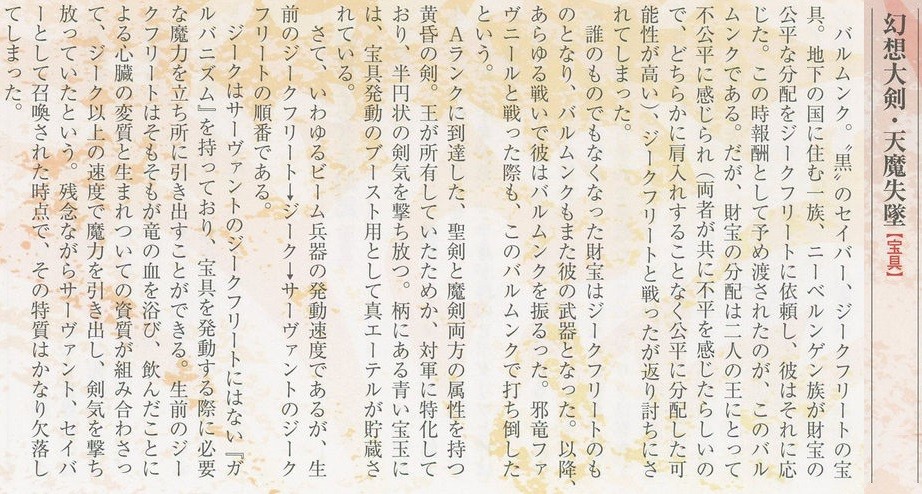 幻想大剣・天魔失墜【宝具】
バルムンク。〝黒〟のセイバー、ジークフリートの宝
具。地下の国に住む一族、ニーベルンゲン族が財宝の
公平な分配をジークフリートに依頼し、彼はそれに応
じた。この時報酬として予め渡されたのが、このバル
ムンクである。だが、財宝の分配は二人の王にとって
不公平に感じられ（両者が共に不平を感じたらしいの
で、どちらかに肩入れすることなく公平に分配した可
能性が高い）、ジークフリートと戦ったが返り討ちにさ
れてしまった。
誰のものでもなくなった財宝はジークフリートのも
のとなり、バルムンクもまた彼の武器となった。以降、
あらゆる戦いで彼はバルムンクを振るった。邪竜ファ
ヴニールと戦った時も、このバルムンクで打ち倒した
という。
Aランクに到達した、聖剣と魔剣両方の属性を持つ
黄昏の剣。王が所有していたためか、対軍に特化して
おり、半円状の剣気を撃ち放つ。柄にある青い宝玉に
は、宝具発動のブースト用として真エーテルが貯蔵さ
れている。
さて、いわゆるビーム兵器の発動速度であるが、生
前のジークフリート→ジーク→サーヴァントのジーク
フリートの順番である。
ジークはサーヴァントのジークフリートにはない『ガ
ルバニズム』を持っており、宝具を発動する際に必要
な魔力を立ち所に引き出すことができる。生前のジー
クフリートはそもそもが竜の血を浴び、飲んだことに
よる心臓の変質と生まれついての資質が組み合わさっ
て、ジーク以上の速度で魔力を引き出し、剣気を撃ち
放っていたという。残念ながらサーヴァント、セイバ
ーとして召喚された時点で、その特質はかなり欠落し
てしまった。